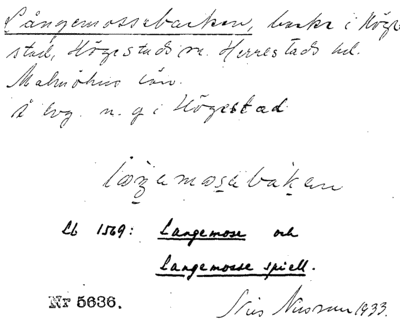 Långemossabacken, backe i Höge-
stad, Högestads sn. Herrestads hd.
Malmöhus län.
å hg. n. g i Högestad
Lb 1569: Langemose och
Langemosse spiell.
Nr 5636.
1933.